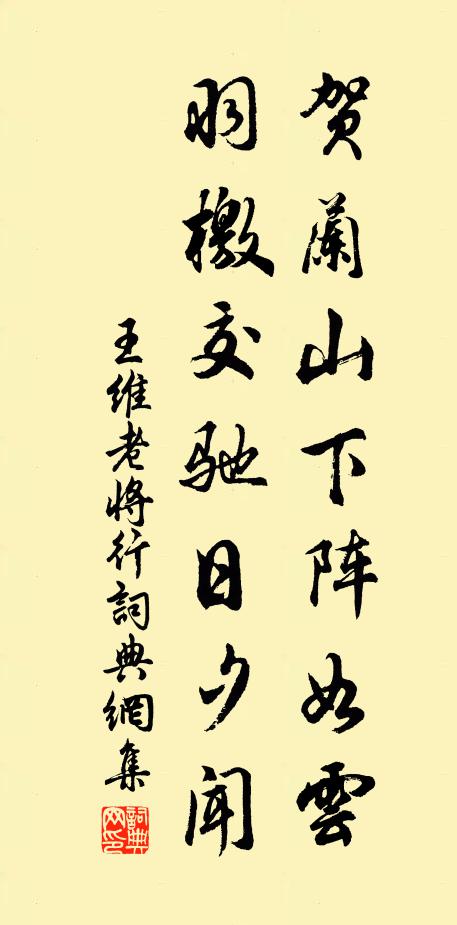 贺蘭山下阵如雲
羽檄交驰日夕闻
王維老將行詞典網集
詞典網印